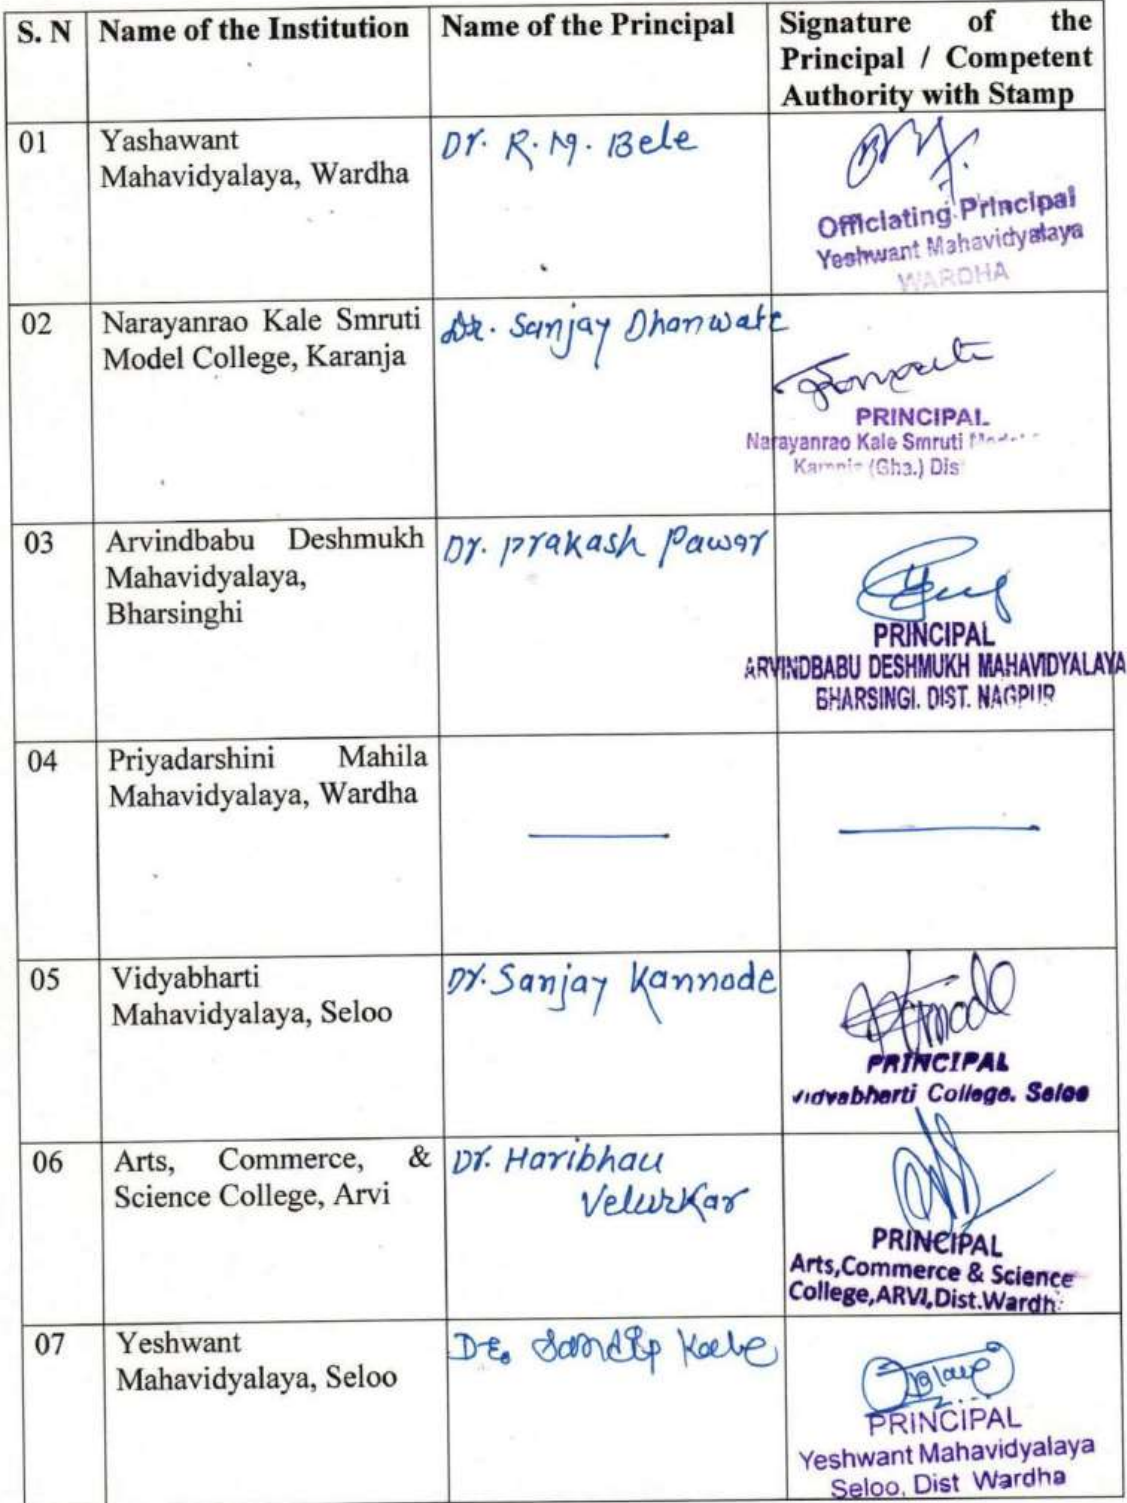 S. N Name of the Institution Name of the Principal Signature of the
Principal / Competent
Authority with Stamp
01 Yashawant
Mahavidyalaya, Wardha
Dr. R. M. Bele
Officiating Principal
Yeshwant Mahavidyalaya
WARDHA
02 Narayanrao Kale Smruti
Model College, Karanja
Dr. Sanjay Dhanwate
PRINCIPAL
Narayanrao Kale Smruti Model
(Gha.) Dis
03 Arvindbabu Deshmukh
Mahavidyalaya,
Bharsinghi
Dr. Prakash Pawar
PRINCIPAL
ARVINDBABU DESHMUKH MAHAVIDYALAYA
BHARSINGI. DIST. NAGPUR
04 Priyadarshini Mahila
Mahavidyalaya, Wardha
05 Vidyabharti
Mahavidyalaya, Seloo
Dr. Sanjay Kannode
PRINCIPAL
Vidyabharti College. Seloo
06 Arts, Commerce, &
Science College, Arvi
Dr. Haribhau
Velurkar
PRINCIPAL
Arts,Commerce & Science
College,ARVI,Dist.Wardh
07 Yeshwant
Mahavidyalaya, Seloo
Dr. Sandip
PRINCIPAL
Yeshwant Mahavidyalaya
Seloo, Dist Wardha